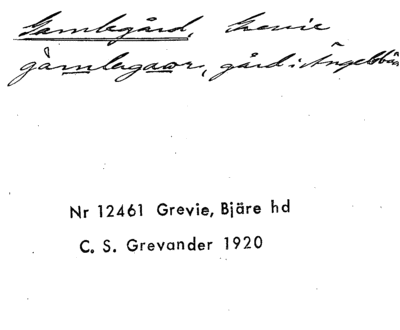 Gamlegård, Grevie
gåmlegaor, gård i Ängelsbäc
Nr 12461 Grevie, Bjäre hd
C. S. Grevander 1920